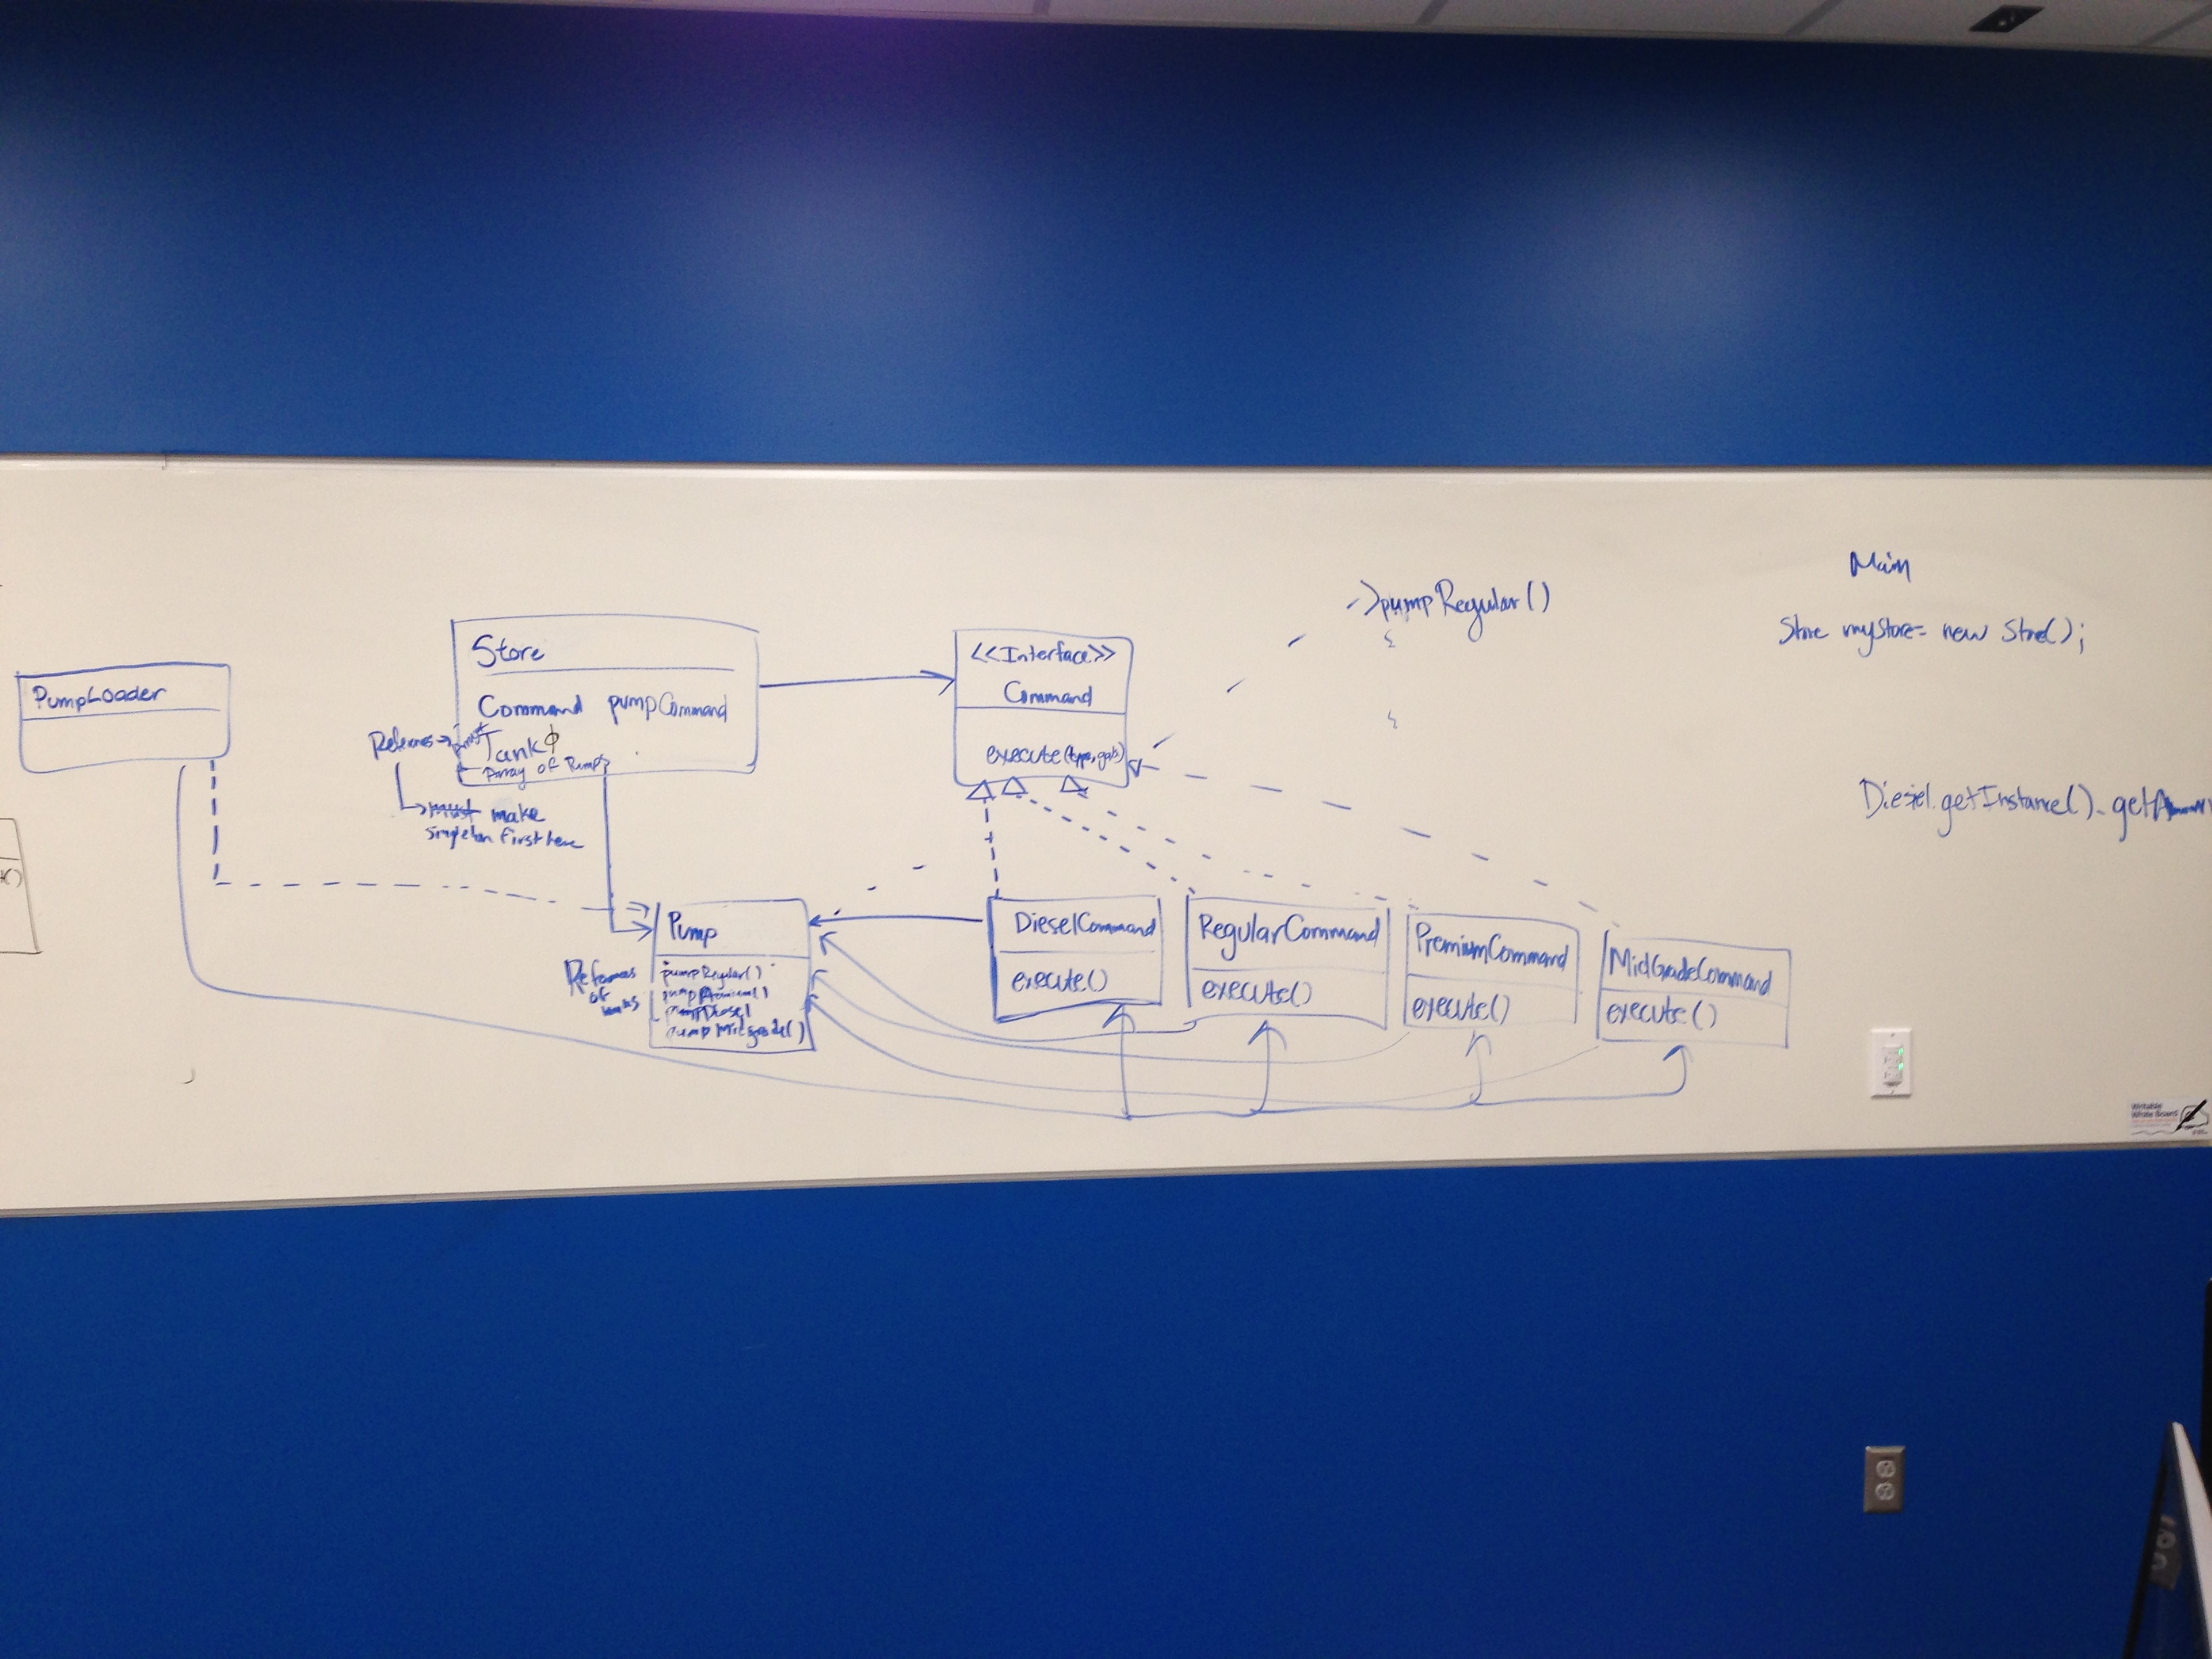 PumpLoader
Store
Command pumpCommand
Tank
Array of Pumps
must make
singleton first here
<<Interface>>
Command
execute(type, gals)
->pumpRegular()
{
}
Main
Store myStore = new Store();
Diesel.getInstance().get
Pump
pumpRegular()
pumpPremium()
pumpDiesel
pumpMidgrade()
of
DieselCommand
execute()
RegularCommand
execute()
PremiumCommand
execute()
MidGradeCommand
execute()
Writable
White Board